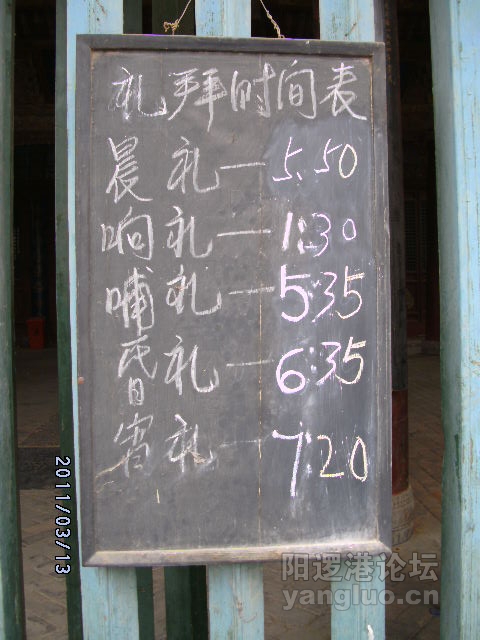 礼拜时间表
晨礼—5.50
响礼—1:30
哺礼—5:35
昏礼—6:35
宵礼—7:20
2011/03/13
阳逻港论坛
yangluo.cn